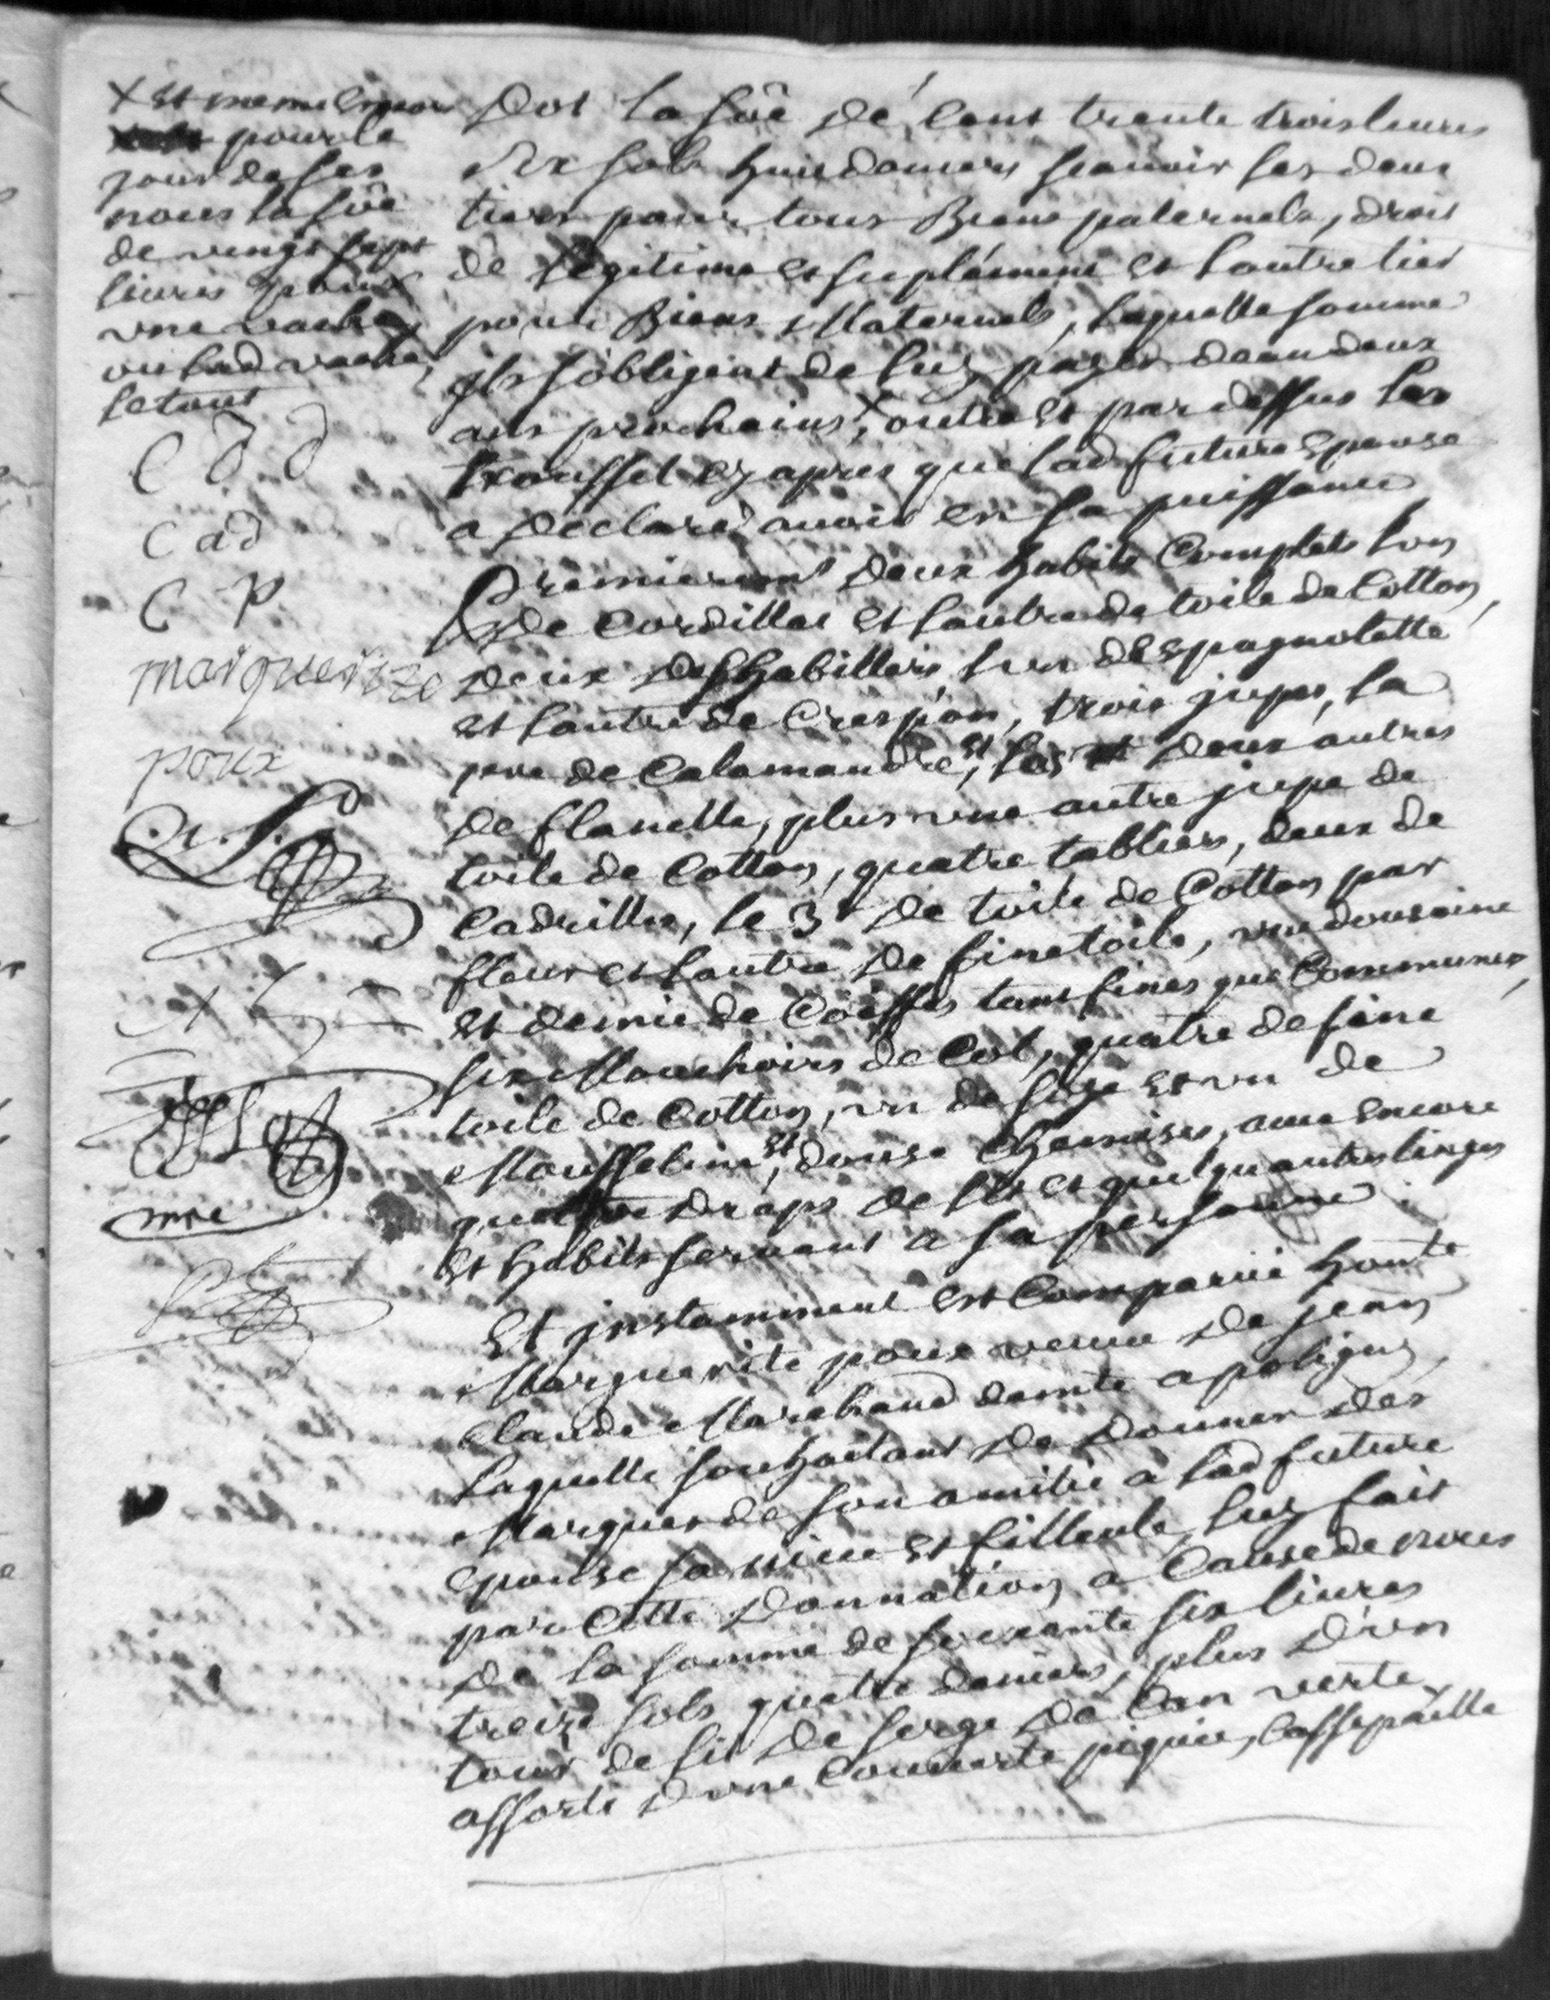 X Et meme
pour le
jour de ses
noces la sôe
de vingt sept
livres pour
une vache,
ou lad vache,
le tout
C D D
C a d
C P
marguerite
poux
mre
Dot la sôe de Cent trente trois livres
six sols huit deniers scavoir les deux
tiers pour tous Biens paternels, droit
de legitime et suplément et l'autre tier
pour Biens Maternels, laquelle somme
ils s'obligent de luy payer dans deux
ans prochains,X outre et par dessus les
troussel cy apres que lad future Epouse
a declaré avoir en sa puissance
Premieremt deux habits Complets l'un
de Cordillat et l'autre de toile de Cotton,
deux deshabilleis l'un d'Espagnolette
et l'autre de Crespon, trois jupes, la
pre de Calamandre, et les deux autres
de flanelle, plus une autre jupe de
toile de Cotton, quatre tabliers, deux de
Cadrille, le 3e de toile de Cotton par
fleur et l'autre de fine toile, une dousaine
et demie de Coeffes tant fines que Communes,
six Mouchoirs de Col, quatre de fine
toile de Cotton, un de soye et un de
Mousseline, et douse Chemises, avec encore
quatre draps de lit et quelqu autres linges
et habits servant a sa personne
Et jnstamment est Comparüe honte
Marguerite poux veuve de jean
Claude Marchand demte a poligny
laquelle souhaitant de donner des
Marques de son amitié a lad future
epouse sa niece et filleule, luy fait
par Cette donnation a Cause de noces
de la somme de soixante six livres
treize sols quatre deniers, plus d'un
tour de lit de serge de Can verte
assorti d'une Couverte piquée, Cassepaille